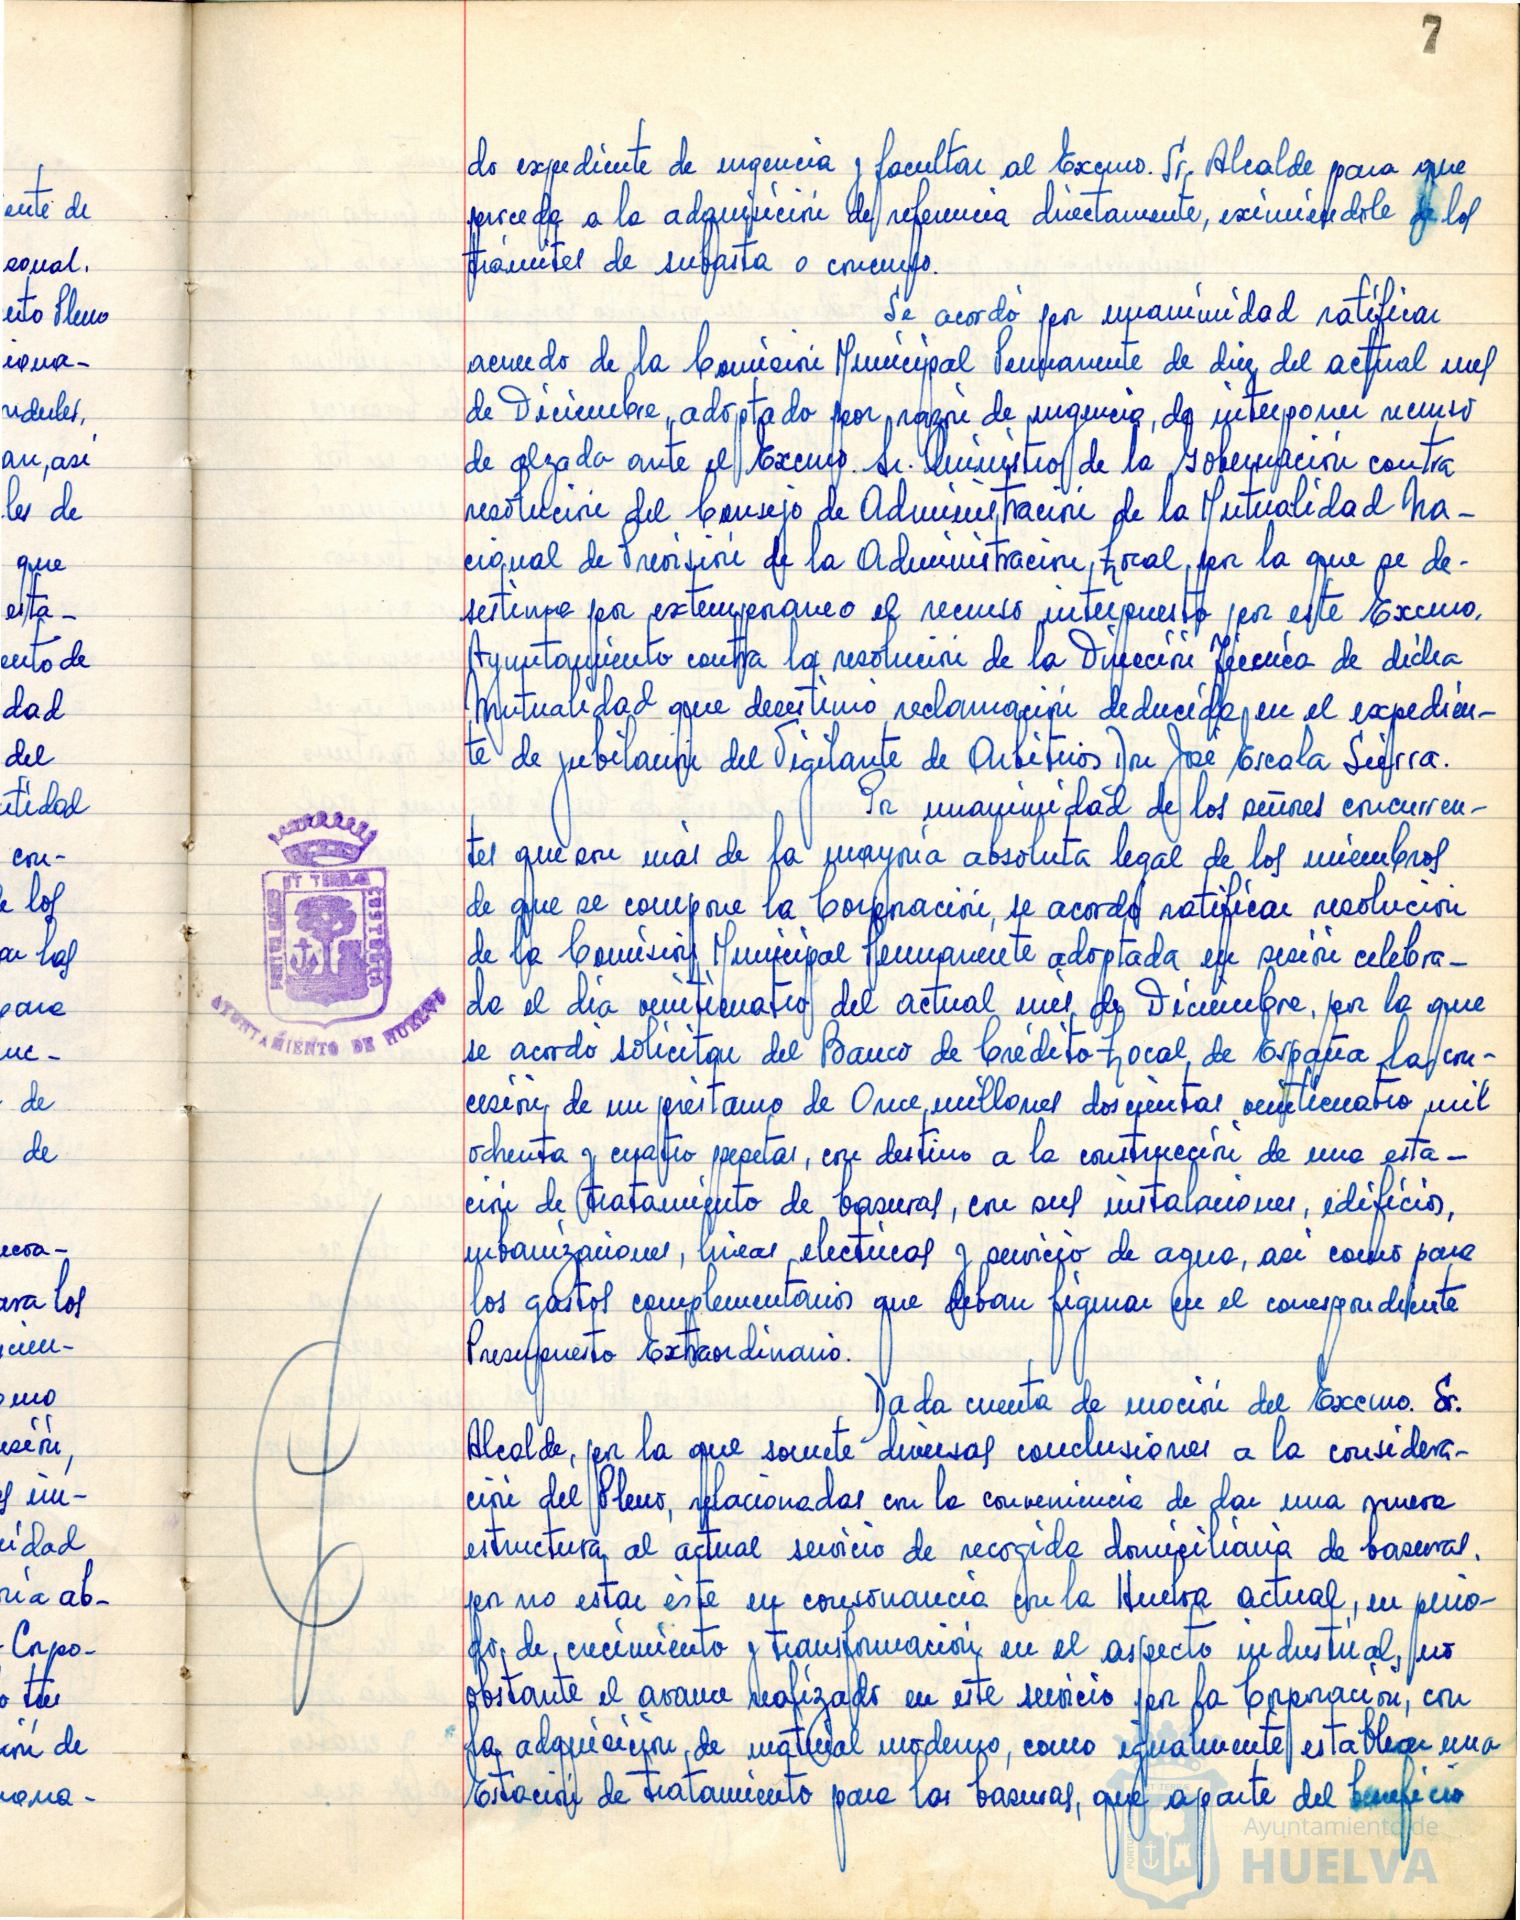 7
do expediente de urgencia y facultar al Excmo. Sr. Alcalde para que
proceda a la adquisición de referencia directamente, eximiéndole de los
trámites de subasta o concurso.
Se acordó por unanimidad ratificar
acuerdo de la Comisión Municipal Permanente de diez del actual mes
de Diciembre, adoptado por razón de urgencia, de interponer recurso
de alzada ante el Excmo. Sr. Ministro de la Gobernación contra
resolución del Consejo de Administración de la Mutualidad Na-
cional de Previsión de la Administración Local, por la que se de-
sestima por extemporaneo el recurso interpuesto por este Excmo.
Ayuntamiento contra la resolución de la Dirección Técnica de dicha
Mutualidad que desestimó reclamación deducida en el expedien-
te de jubilación del Vigilante de Arbitrios Don José Escala Sierra.
Por unanimidad de los señores concurren-
tes que son más de la mayoría absoluta legal de los miembros
de que se compone la Corporación, se acordó ratificar resolución
de la Comisión Municipal Permanente adoptada en sesión celebra-
da el día veinticuatro del actual mes de Diciembre, por la que
se acordó solicitar del Banco de Crédito Local de España la con-
cesión de un préstamo de Once millones doscientas veinticuatro mil
ochenta y cuatro pesetas, con destino a la construcción de una esta-
ción de tratamiento de basuras, con sus instalaciones, edificios,
urbanizaciones, líneas electricas y servicio de agua, así como para
los gastos complementarios que deban figurar en el correspondiente
Presupuesto Extraordinario.
Dada cuenta de moción del Excmo. Sr.
Alcalde, por la que somete diversas conclusiones a la considera-
ción del Pleno, relacionadas con la conveniencia de dar una nueva
estructura al actual servicio de recogida domiciliaria de basuras,
por no estar éste en consonancia con la Huelva actual, en perio-
do de crecimiento y transformación en el aspecto industrial, no
obstante el avance realizado en este servicio por la Corporación, con
la adquisición de material moderno, como igualmente establecer una
Estación de tratamiento para las basuras, que aparte del beneficio
AYUNTAMIENTO DE HUELVA
Ayuntamiento de
HUELVA